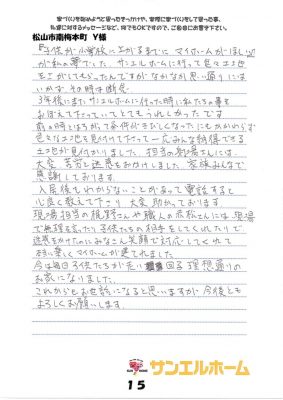 家づくりを始めようと思ったきっかけや、実際に家づくりをして思った事、
松山市南梅本町 Y様
『子供が小学校に上がるまでに マイホームがほしい』
が私の夢でした。サンエルホームに行って色々土地
をさがしてもらったんですが、なかなか思い通りには
いかず、その時は断念。
3年後にまたサンエルホームに行った時に私たちの事を
おぼえて下さっていてとてもうれしかったです。
前の時とはちがって条件がきびしくなったにもかかわらず
色々な土地を見付けて下さって一応みんな納得できる
土地が見付かりました。担当の さんには、
大変 苦労と迷惑をおかけしました。家族みんなで
感謝しております。
入居後もわからないことがあって電話すると
心良く教えて下さり 大変 助かっております。
現場担当の さんや職人の さんには、現場
で無理を言ったり子供たちの相手をしてくれたりで
迷惑をかけたのにみなさん笑顔で対応してくれて
本当に楽しくマイホームが建てれました。
今は毎日子供たちが走り回る理想通りの
お家になりました。
これからもお世話になると思いますが 今後とも
よろしくお願いします。
サンエルホーム
15